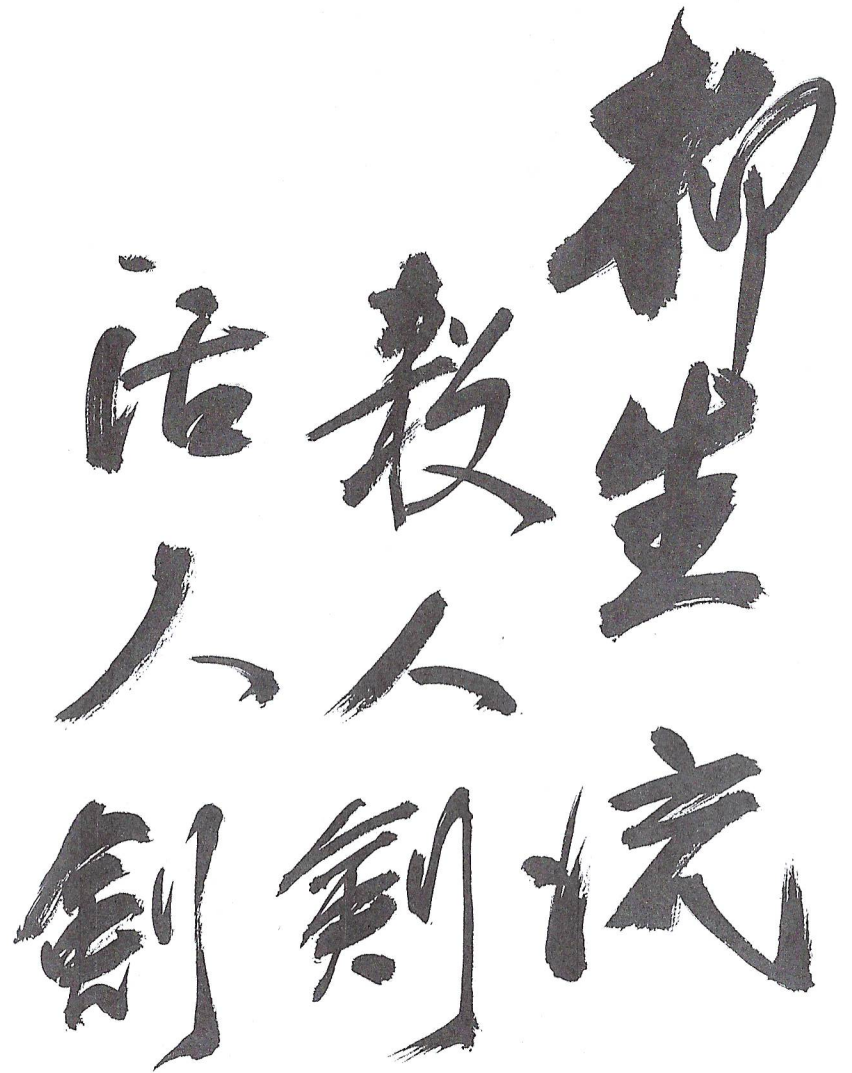 柳生流
殺人剣
活人剣